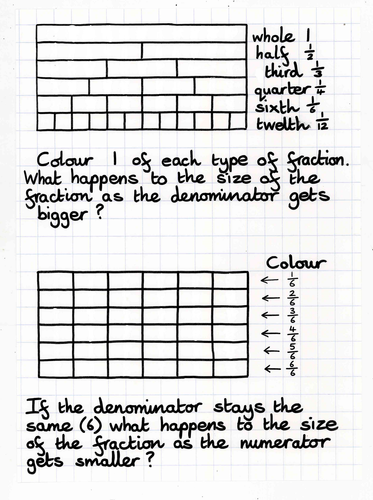 whole 1
half 1/2
third 1/3
quarter 1/4
sixth 1/6
twelth 1/12
Colour 1 of each type of fraction.
What happens to the size of the
fraction as the denominator gets
bigger ?
Colour
← 1/6
← 2/6
← 3/6
← 4/6
← 5/6
← 6/6
If the denominator stays the
same (6) what happens to the size
of the fraction as the numerator
gets smaller ?